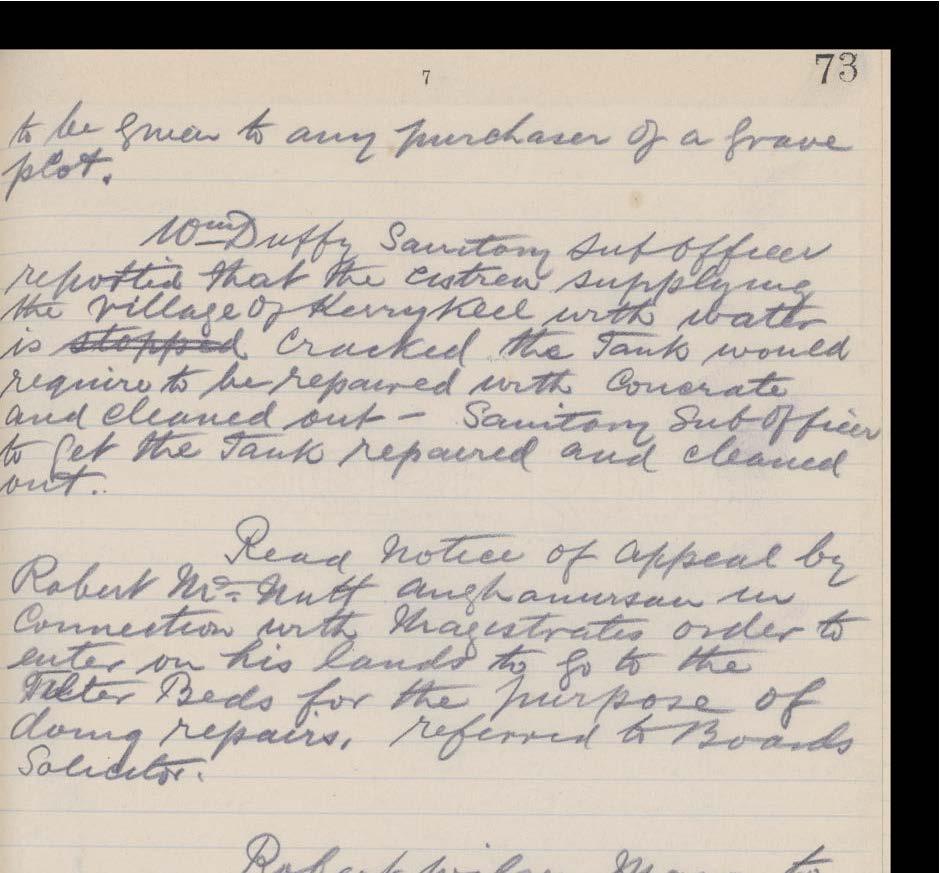 7
73
to be given to any purchaser of a grave
plot.
Wm Duffy Sanitary Sub Officer
reported that the cistren supplying
the Village of Kerrykeel with water
is stopped Cracked the Tank would
require to be repaired with Concrate
and cleaned out - Sanitary Sub Officer
to get the Tank repaired and cleaned
out.
Read Notice of appeal by
Robert Mc Nutt in
Connection with Magistrates order to
enter on his lands to go to the
Filter Beds for the purpose of
doing repairs, referred to Boards
Solicitor.
Robert